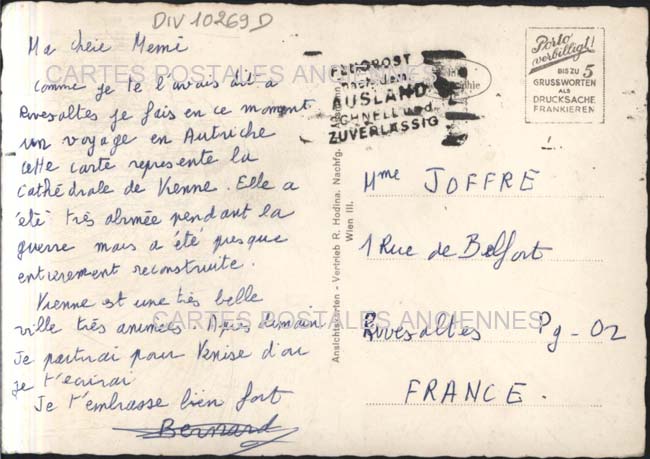 DIV 10269 D
Ma chère Mémé
comme je te l'avais dit à
Rivesaltes je fais en ce moment
un voyage en Autriche
cette carte represente la
cathédrale de Vienne. Elle a
été très abimée pendant la
guerre mais a été presque
entièrement reconstruite.
Vienne est une très belle
ville très animée. Après demain
Je partirai pour Venise d'où
je t'écrirai
Je t'embrasse bien fort
Bernard
CARTES POSTALES ANCIENNES
CARTES POSTALES ANCIENNES
FLUGPOST
nach dem
AUSLAND
SCHNELL und
ZUVERLÄSSIG
Porto
verbilligt!
BIS ZU 5
GRUSSWORTEN
ALS
DRUCKSACHE
FRANKIEREN
Ansichtskarten - Vertrieb R. Hodina, Nachfg.
Wien III.
Mme JOFFRE
1 Rue de Belfort
Rivesaltes Py - O2
FRANCE.